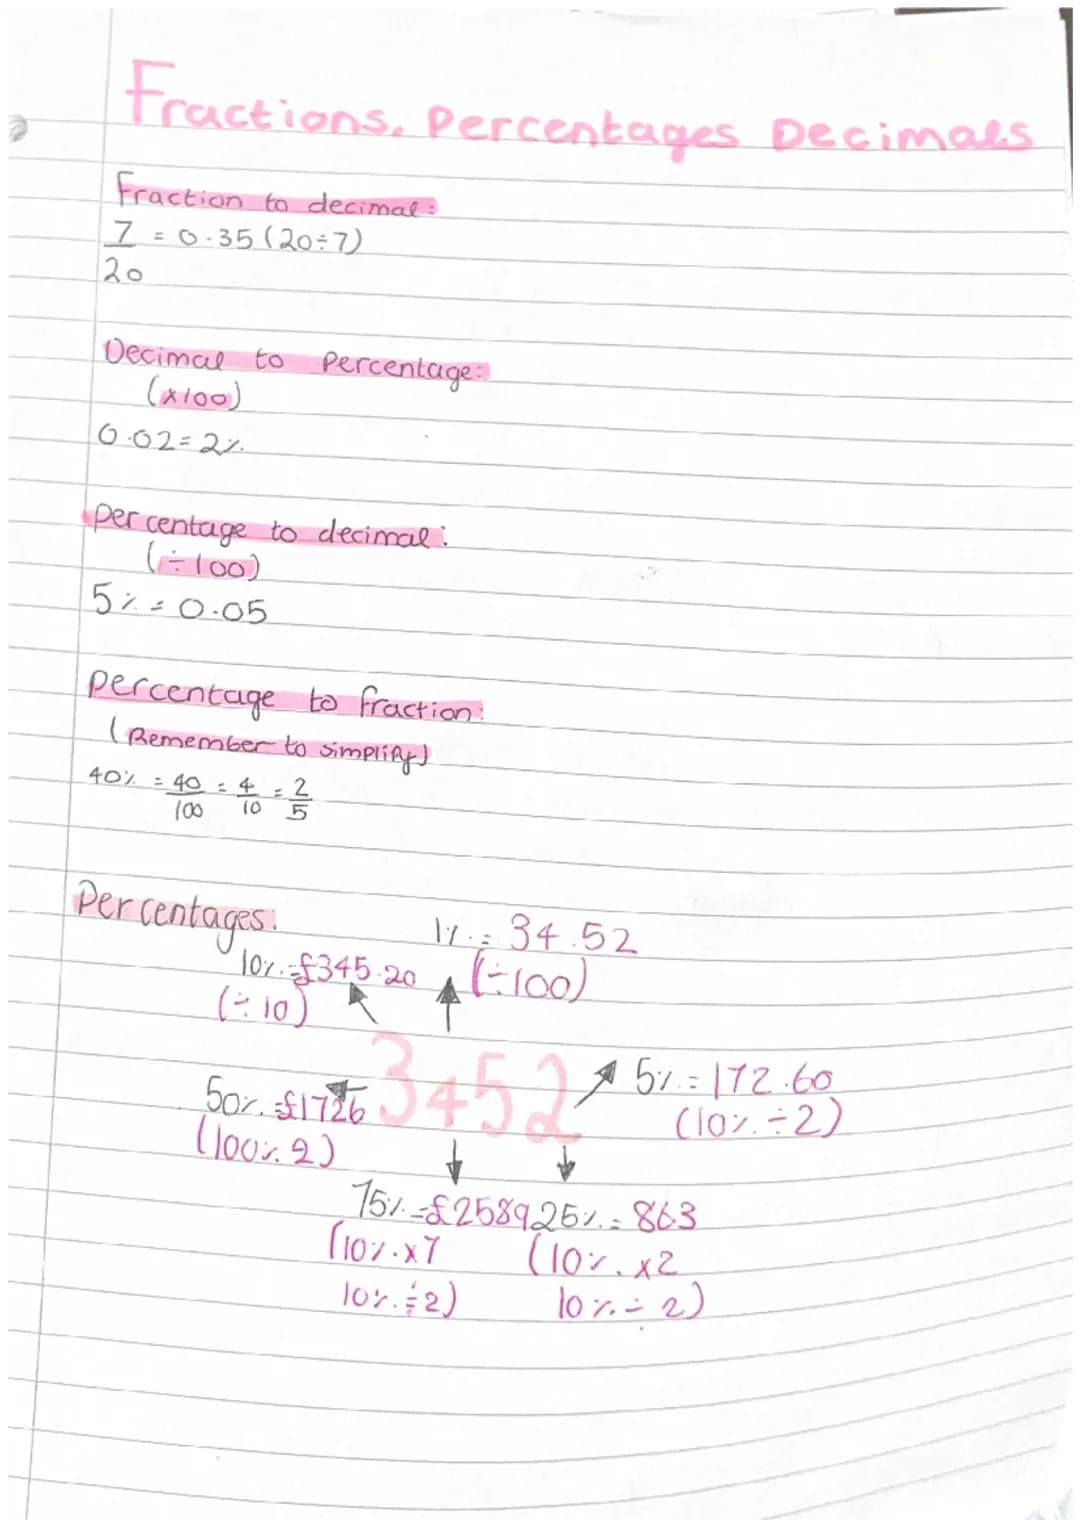 Fractions, Percentages Decimals
Fraction to decimal:
7/20 = 0.35 (20÷7)
Decimal to Percentage:
(x100)
0.02 = 2%
Percentage to decimal:
(÷100)
5% = 0.05
Percentage to fraction:
(Remember to simplify)
40% = 40/100 = 4/10 = 2/5
Percentages:
1% = 34.52
(÷100)
10% = £345.20
(÷10)
3452
5% = 172.60
(10% ÷2)
50% = £1726
(100% 2)
75% = £2589
(10% x7
10% ÷2)
25% = 863
(10% x2
10% ÷ 2)